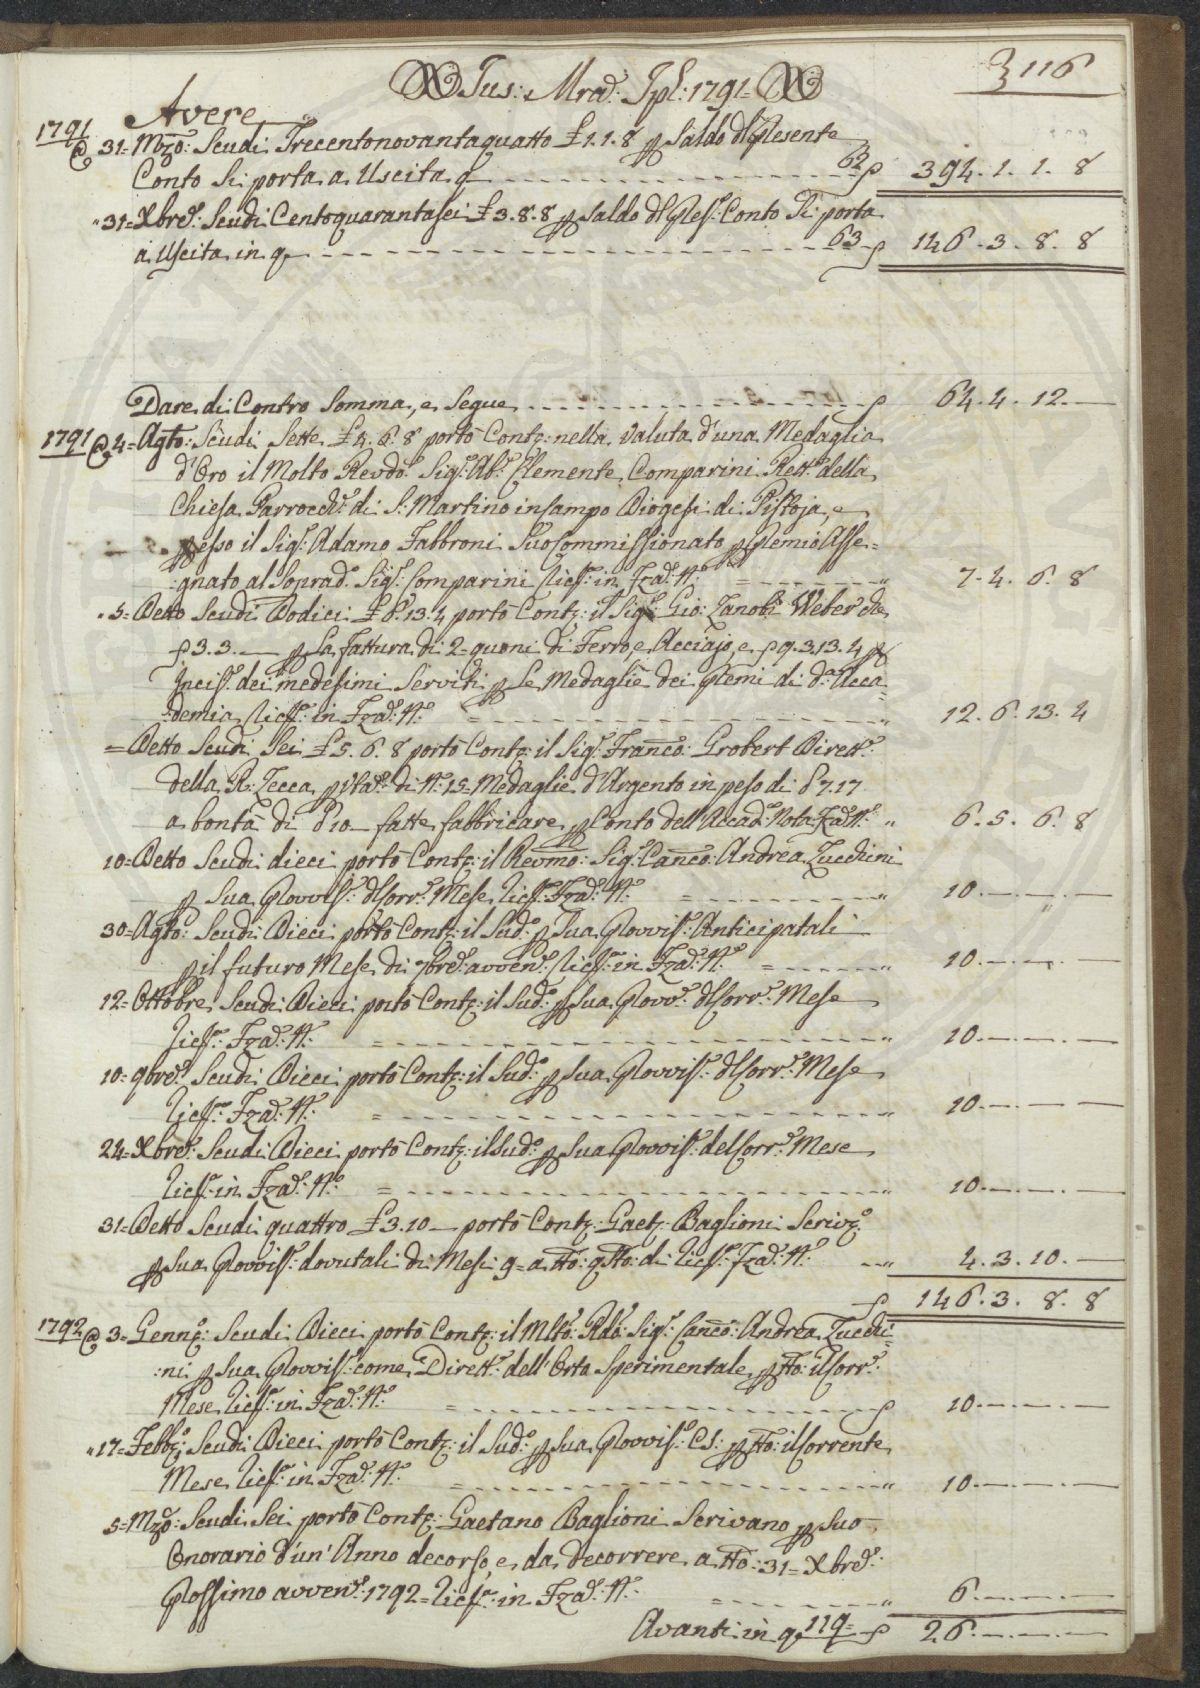 Jus: Mrad: Jpl: 1791=
116
Avere
1791
@ 31= Mzo: Scudi Trecentonovantaquatto £ 1.1.8 p Saldo dl Plesente
Conto Si porta a Uscita q 62 394. 1. 1. 8
" 31= Xbre: Scudi Centoquarantasei £ 3.8.8 p Saldo dl Pless: Conto Si porta
a Uscita in q 63 146. 3. 8. 8
Dare di Contro Somma, e Segue 64. 4. 12. —
1791 @ 4= Agto: Scudi Sette £ 4.6.8 portò Contz: nella valuta d'una Medaglia
d'Oro il Molto Revdo: Sigr: Ab: Clemente Comparini Rett: della
Chiesa Parrocchi: di S: Martino in Campo Diogesi di Pistoja, e
p esso il Sigr: Adamo Fabbroni Suo Commissionato p Plemio Asse=
:gnato al Soprad: Sigr: Comparini Ricf: in Fzad: N: = " 7. 4. 6. 8
" 5= Detto Scudi Dodici £ 6.13.4 portò Contz: il Sigr: Gio: Zanobi Weber che
3.3. — p La fattura di 2= quoni di Ferro, e Acciajo, e 9.3.13.4 p
Incis: dei medesimi Serviti p Le Medaglie dei Plemi di da: Acca=
:demia Ricf: in Fzad: N: = " 12. 6. 13. 4
= Detto Scudi Sei £ 5.6.8 portò Contz: il Sigr: Franco: Grobert Dirett:
della R: Zecca p Vta: di N: 15= Medaglie d'Argento in peso di 7.17
a bontà di 10 — fatte fabbricare p Conto dell'Accad: Nota Fzad: N: " 6. 5. 6. 8
10= Detto Scudi dieci portò Contz: il Revmo: Sigr: Canco: Andrea Zucchini
p Sua Plovvis: dl Corr: Mese Ricf: Fzad: N: = " 10. — . — . —
30= Agto: Scudi Dieci portò Contz: il Sud: p Sua Plovvis: Anticipatali
p il futuro Mese di 7bre: avven: Ricf: in Fzad: N: = " 10. — . — . —
12= Ottobre Scudi Dieci portò Contz: il Sud: p Sua Plovv: dl Corr: Mese
Ricf: Fzad: N: = " 10. — . — . —
10= 9bre: Scudi Dieci portò Contz: il Sud: p Sua Plovvis: dl Corr: Mese
Ricf: Fzad: N: = " 10. — . — . —
24= Xbre: Scudi Dieci portò Contz: il Sud: p Sua Plovvis: del Corr: Mese
Ricf: in Fzad: N: = " 10. — . — . —
31= Detto Scudi quattro £ 3.10 — portò Contz: Gaetz: Baglioni Scriv:
p Sua Plovvis: dovutali di Mesi 9= a tto: qsto: di Ricf: Fzad: N: " 4. 3. 10. —
146. 3. 8. 8
1792 @ 3= Gennz: Scudi Dieci portò Contz: il Mlto: Rdo: Sigr: Canco: Andrea Zucchi=
:ni p Sua Plovvis: come Dirett: dell'Orto Sperimentale p tto: il Corr:
Mese Ricf: in Fzad: N: = 10. — . — . —
" 17= Febbz: Scudi Dieci portò Contz: il Sud: p Sua Plovvis: C.S: p tto: il Corrente
Mese Ricf: in Fzad: N: = " 10. — . — . —
5= Mzo: Scudi Sei portò Contz: Gaetano Baglioni Scrivano p Suo
Onorario d'un'Anno decorso, e da decorrere a tto: 31= Xbre:
Plossimo avven: 1792= Ricf: in Fzad: N: = " 6. — . — . —
Avanti in q 119= 26. — . — . —